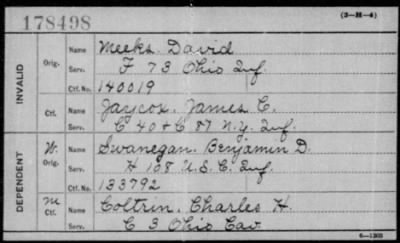 178498
(3-H-4)
INVALID
Orig. Name Meeks, David
Serv. F 73 Ohio Inf.
Ctf. No. 140019
Ctf. Name Jaycox, James C.
Serv. C 40 + C 87 N.Y. Inf.
DEPENDENT
W. Orig. Name Swanegan, Benjamin D.
Serv. H 108 U.S.C. Inf.
Ctf. No. 133792
M Ctf. Name Coltrin, Charles H.
Serv. C 3 Ohio Cav.